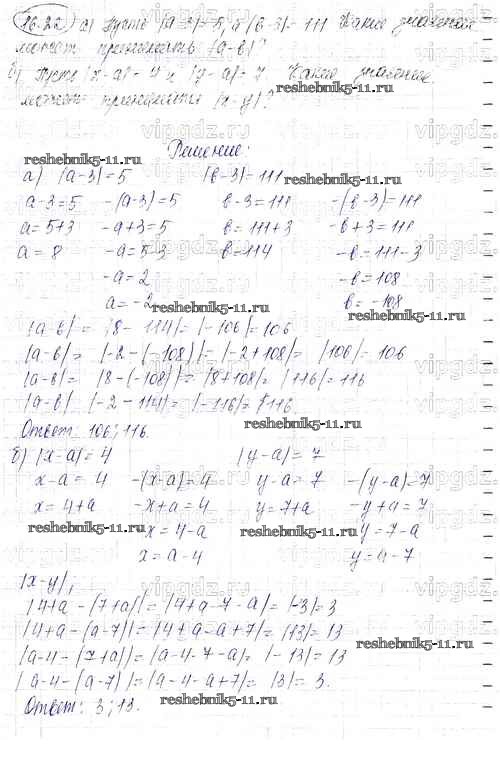 16.22 а) Пусть |a-3|=5, а |в-3|=111 Какие значения
может принимать |a-в|?
б) Пусть |x-a|=4 и |y-a|=7. Какие значение
может принимать |x-y|?
Решение:
а) |a-3|=5 |в-3|=111
a-3=5 -(a-3)=5 в-3=111 -(в-3)=111
a=5+3 -a+3=5 в=111+3 -в+3=111
a=8 -a=5-3 в=114 -в=111-3
-a=2 -в=108
a=-2 в=-108
|a-в|= |8-114|=|-106|=106
|a-в|= |-2-(-108)|=|-2+108|= |106|=106
|a-в|= |8-(-108)|=|8+108|= |116|=116
|a-в| |-2-114|=|-116|=116
Ответ: 106; 116.
б) |x-a|=4 |y-a|=7
x-a=4 -(x-a)=4 y-a=7 -(y-a)=7
x=4+a -x+a=4 y=7+a -y+a=7
-x=4-a -y=7-a
x=a-4 y=a-7
|x-y|;
|4+a-(7+a)|=|4+a-7-a|=|-3|=3
|4+a-(a-7)|=|4+a-a+7|=|13|=13
|a-4-(7+a)|=|a-4-7-a|=|-13|=13
|a-4-(a-7)|=|a-4-a+7|=|3|=3.
Ответ: 3; 13.
reshebnik5-11.ru
vipgdz.ru